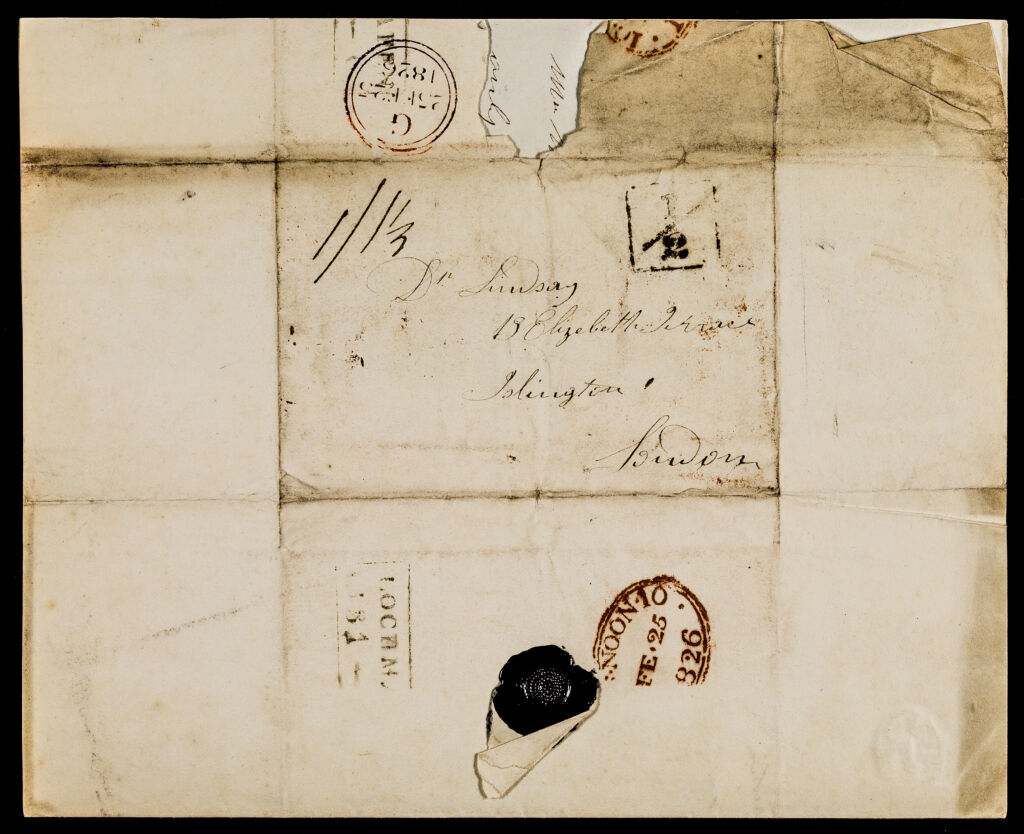 G
25 FE
1826
Mr
only
1/1½
1/2
Dr Lindsay
18 Elizabeth Terrace
Islington
London
LOCHM
384
NOON·10
FE·25
826